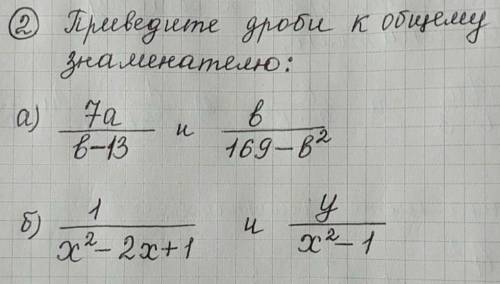 ② Приведите дроби к общему
знаменателю:
а) 7a/(b-13) и b/(169-b²)
б) 1/(x²-2x+1) и y/(x²-1)